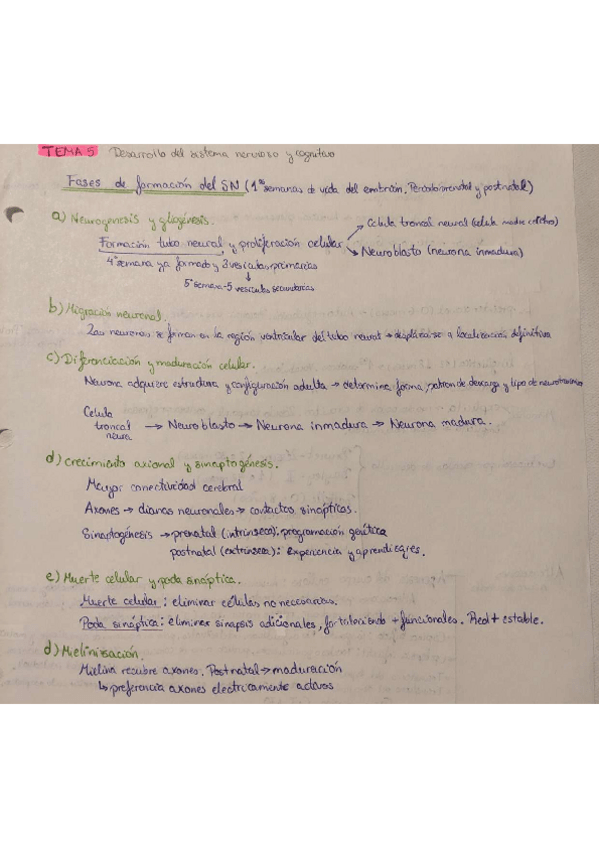 TEMA 5 Desarrollo del sistema nervioso y cognitivo
Fases de formación del SN (1ªˢ semanas de vida del embrión. Periodo prenatal y postnatal)
a) Neurogenesis y gliogénesis.
Formación tubo neural y proliferación celular → Celula troncal neural (celula madre
→ Neuroblasto (neurona inmadura)
4ª semana ya formado y 3 vesículas primarias
↓
5ª semana - 5 vesículas secundarias
b) Migración neuronal.
Las neuronas se forman en la región ventricular del tubo neural → desplazarse a localización definitiva
c) Diferenciación y maduración celular.
Neurona adquiere estructura y configuración adulta → determina forma, patrón de descarga y tipo de
Celula troncal neura → Neuroblasto → Neurona inmadura → Neurona madura.
d) Crecimiento axional y sinaptogénesis.
Mayor conectividad cerebral
Axones → dianas neuronales → contactos sinápticos.
Sinaptogénesis → prenatal (intrínseco): programación genética
postnatal (extrínseco): Experiencia y aprendizajes.
e) Muerte celular y poda sináptica.
Muerte celular: eliminar células no necesarias.
Poda sináptica: eliminar sinapsis adicionales, fortaleciendo + funcionales. Red + estable.
d) Mielinización.
Mielina recubre axones. Postnatal → maduración
↳ preferencia axones electricamente activos